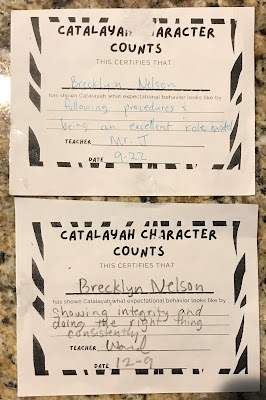 CATALAYAH CHARACTER
COUNTS
THIS CERTIFIES THAT
Brecklyn Nelson
has shown Catalayah what expectational behavior looks like by
following procedures &
being an excellent role model
TEACHER Mr. J
DATE 9-22
CATALAYAH CHARACTER
COUNTS
THIS CERTIFIES THAT
Brecklyn Nelson
has shown Catalayah what expectational behavior looks like by
Showing integrity and
doing the right thing
consistently
TEACHER Ward
DATE 12-9